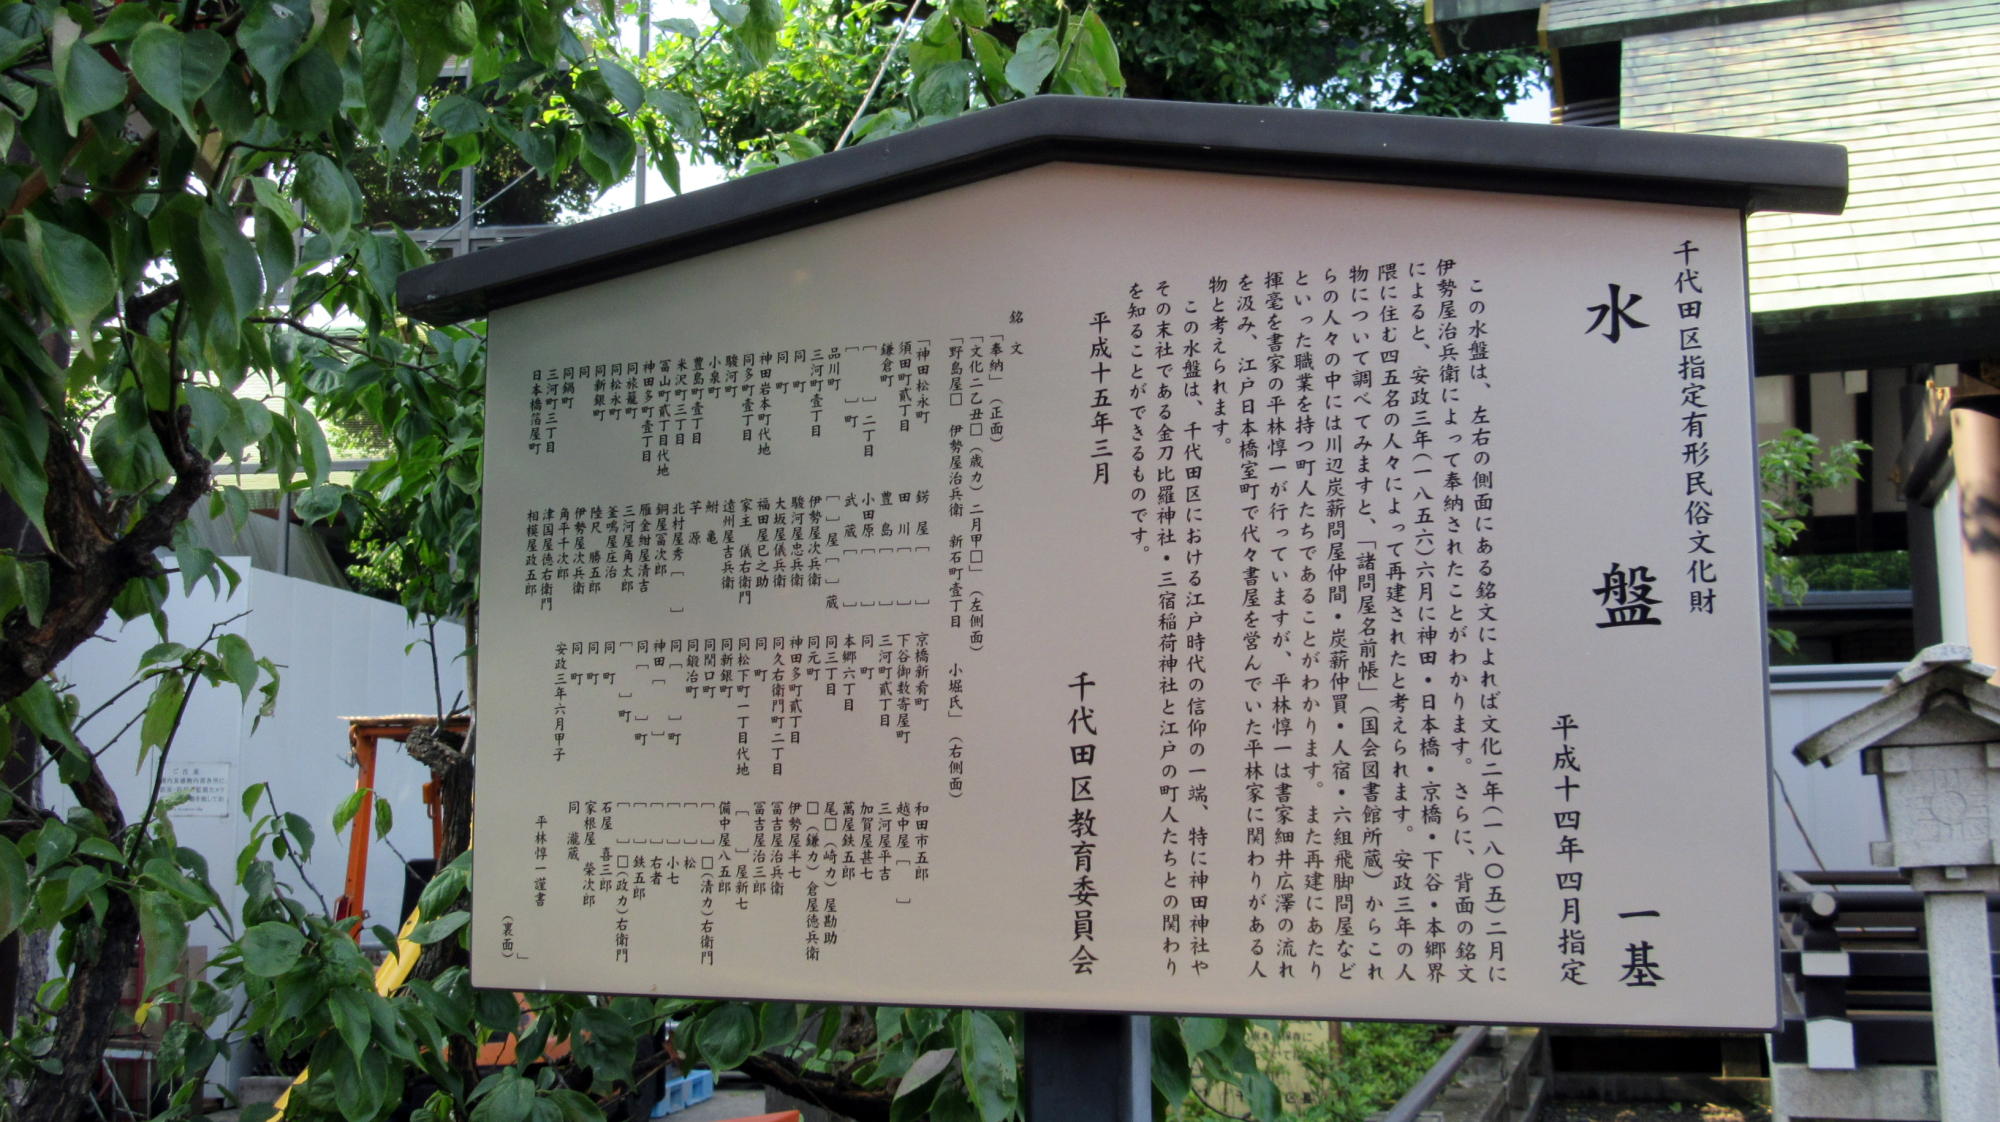 千代田区指定有形民俗文化財
水盤 一基
平成十四年四月指定
この水盤は、左右の側面にある銘文によれば文化二年(一八〇五)二月に
伊勢屋治兵衛によって奉納されたことがわかります。さらに、背面の銘文
によると、安政三年(一八五六)六月に神田・日本橋・京橋・下谷・本郷界
隈に住む四五名の人々によって再建されたと考えられます。安政三年の人
物について調べてみますと、「諸問屋名前帳」(国会図書館所蔵)からこれ
らの人々の中には川辺炭薪問屋仲間・炭薪仲買・人宿・六組飛脚問屋など
といった職業を持つ町人たちであることがわかります。また再建にあたり
揮毫を書家の平林惇一が行っていますが、平林惇一は書家細井広澤の流れ
を汲み、江戸日本橋室町で代々書屋を営んでいた平林家に関わりがある人
物と考えられます。
この水盤は、千代田区における江戸時代の信仰の一端、特に神田神社や
その末社である金刀比羅神社・三宿稲荷神社と江戸の町人たちとの関わり
を知ることができるものです。
平成十五年三月
千代田区教育委員会
銘文
「奉納」(正面)
「文化二乙丑□(歳カ)二月甲□」(左側面)
「野島屋□ 伊勢屋治兵衛 新石町壹丁目 小堀氏」(右側面)
「神田松永町
須田町貳丁目
鎌倉町
[ ]二丁目
[ ]町
品川町
三河町壹丁目
同 町
同 町
神田岩本町代地
同多町壹丁目
駿河町
小泉町
豊島町壹丁目
米沢町三丁目
冨山町貳丁目代地
神田多町壹丁目
同旅籠町
同松永町
同新銀町
同
同鍋町
三河町三丁目
日本橋箔屋町
鍔 屋[ ]
田 川[ ]
豊 島[ ]
小田原[ ]
武 蔵[ ]
[ ]屋[ ]蔵
伊勢屋次兵衛
駿河屋忠兵衛
大坂屋儀兵衛
福田屋巳之助
家主 儀右衛門
遠州屋吉兵衛
鮒 亀
芋 源
北村屋秀[ ]
銅屋冨次郎
雁金紺屋清吉
三河屋角太郎
釜鳴屋庄治
陸尺 勝五郎
伊勢屋次兵衛
角平千次郎
津国屋徳右衛門
相模屋政五郎
京橋新肴町
下谷御数寄屋町
三河町貳丁目
同 町
本郷六丁目
同三丁目
同元町
神田多町貳丁目
同久右衛門町二丁目
同 町
同松下町一丁目代地
同新銀町
同関口町
同鍛冶町
同[ ]町
神田[ ]
同[ ]町
[ ]町
同 町
同 町
同 町
安政三年六月甲子
和田市五郎
越中屋[ ]
三河屋平吉
加賀屋甚七
萬屋鉄五郎
尾□(崎カ)屋勘助
□(鎌カ)倉屋徳兵衛
伊勢屋半七
冨吉屋治兵衛
冨吉屋治三郎
[ ]屋新七
備中屋八五郎
[ ]□(清カ)右衛門
[ ]松
[ ]小七
[ ]右者
[ ]鉄五郎
[ ]□(政カ)右衛門
石屋 喜三郎
家根屋 榮次郎
同 瀧蔵
平林惇一謹書
」
(裏面)